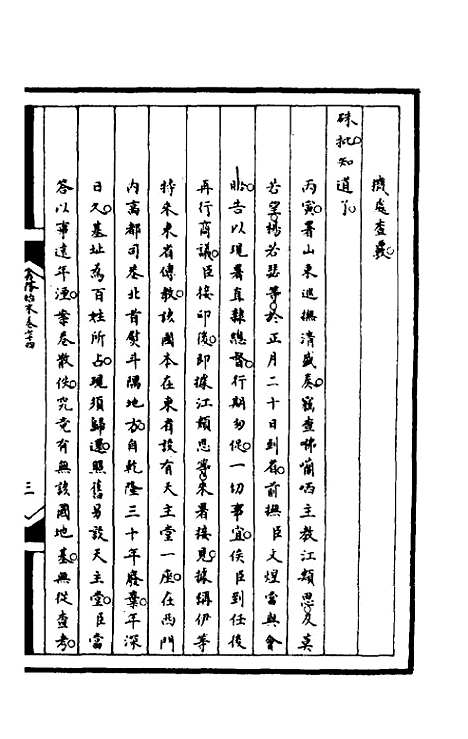 擯處查覈
硃批知道了
丙寅署山東巡撫清盛奏竊查咈囒哂主教江類思及莫
若望楊若瑟等於正月二十日到省前撫臣文煜當與會
晤告以現署直隸總督行期匆促一切事宜俟臣到任後
再行商議臣接印後即據江類思等來署接見據稱伊等
特來東省傳教該國本在東省設有天主堂一座在西門
內高都司巷北首熨斗隅地方自乾隆三十年廢棄年深
日久基址為百姓所占現須歸還照舊另設天主堂臣當
答以事遠年湮案卷散佚究竟有無該國地基無從查考
卷七十四
三